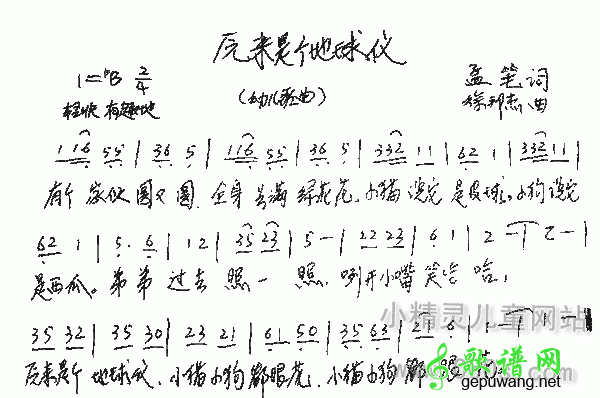 原来是个地球仪
1=♭B 2/4
(幼儿歌曲)
孟笔词
轻快 有趣地
徐邦杰曲
116 55 | 36 5 | 116 55 | 36 5 | 332 11 | 62 1 | 332 11 |
有个家伙圆又圆,全身长满绿花花。小猫说它是皮球。小狗说它
62 1 | 5. 6 | 1 2 | 35 23 | 5 - | 22 23 | 6 1 | 2 - | 2 - |
是西瓜。弟弟过去照一照,咧开小嘴笑哈哈:
35 32 | 35 30 | 23 21 | 61 50 | 35 63 | 21 6 | 1 - | 1 - |
原来是个地球仪,小猫小狗都眼花,小猫小狗都眼花。
小精灵儿童网站
歌谱网
gepuwang.net